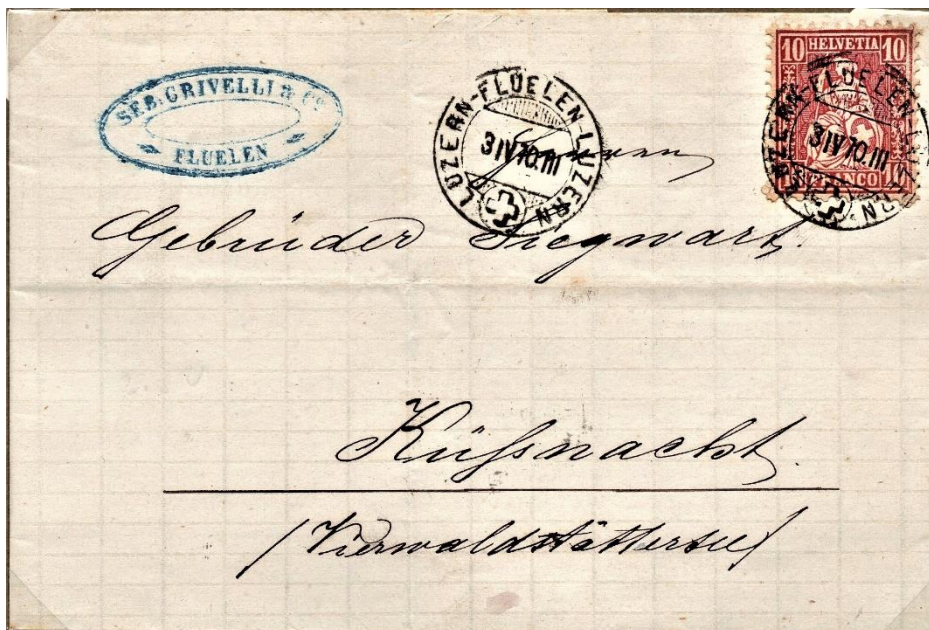 SEB. CRIVELLI & Cᵒ
FLUELEN
LUZERN-FLUELEN-LUZERN
3 IV 70.III
10 HELVETIA 10
FRANCO
LUZERN-FLUELEN-LUZERN
3 IV 70.III
Herren
Gebrüder Siegwart.
Küssnacht.
/Vierwaldstättersee/